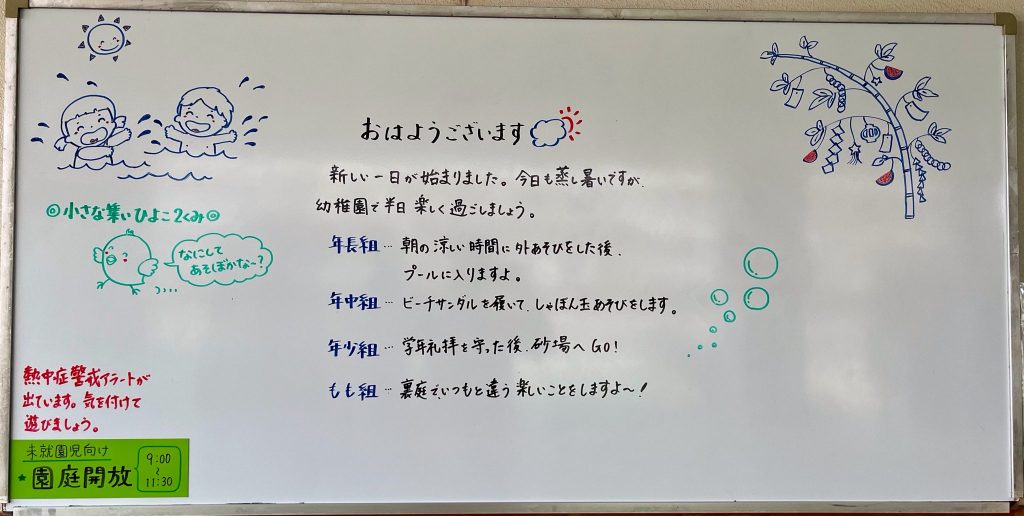 おはようございます
新しい一日が始まりました。今日も蒸し暑いですが、
幼稚園で半日楽しく過ごしましょう。
年長組…朝の涼しい時間に外あそびをした後、
プールに入りますよ。
年中組…ビーチサンダルを履いて、しゃぼん玉あそびをします。
年少組…学年礼拝を守った後、砂場へGO!
もも組…裏庭で、いつもと違う楽しいことをしますよ〜!
◎小さな集い ひよこ2くみ◎
なにして
あそぼかな〜?
熱中症警戒アラートが
出ています。気を付けて
遊びましょう。
未就園児向け
★園庭開放
9:00
〜
11:30